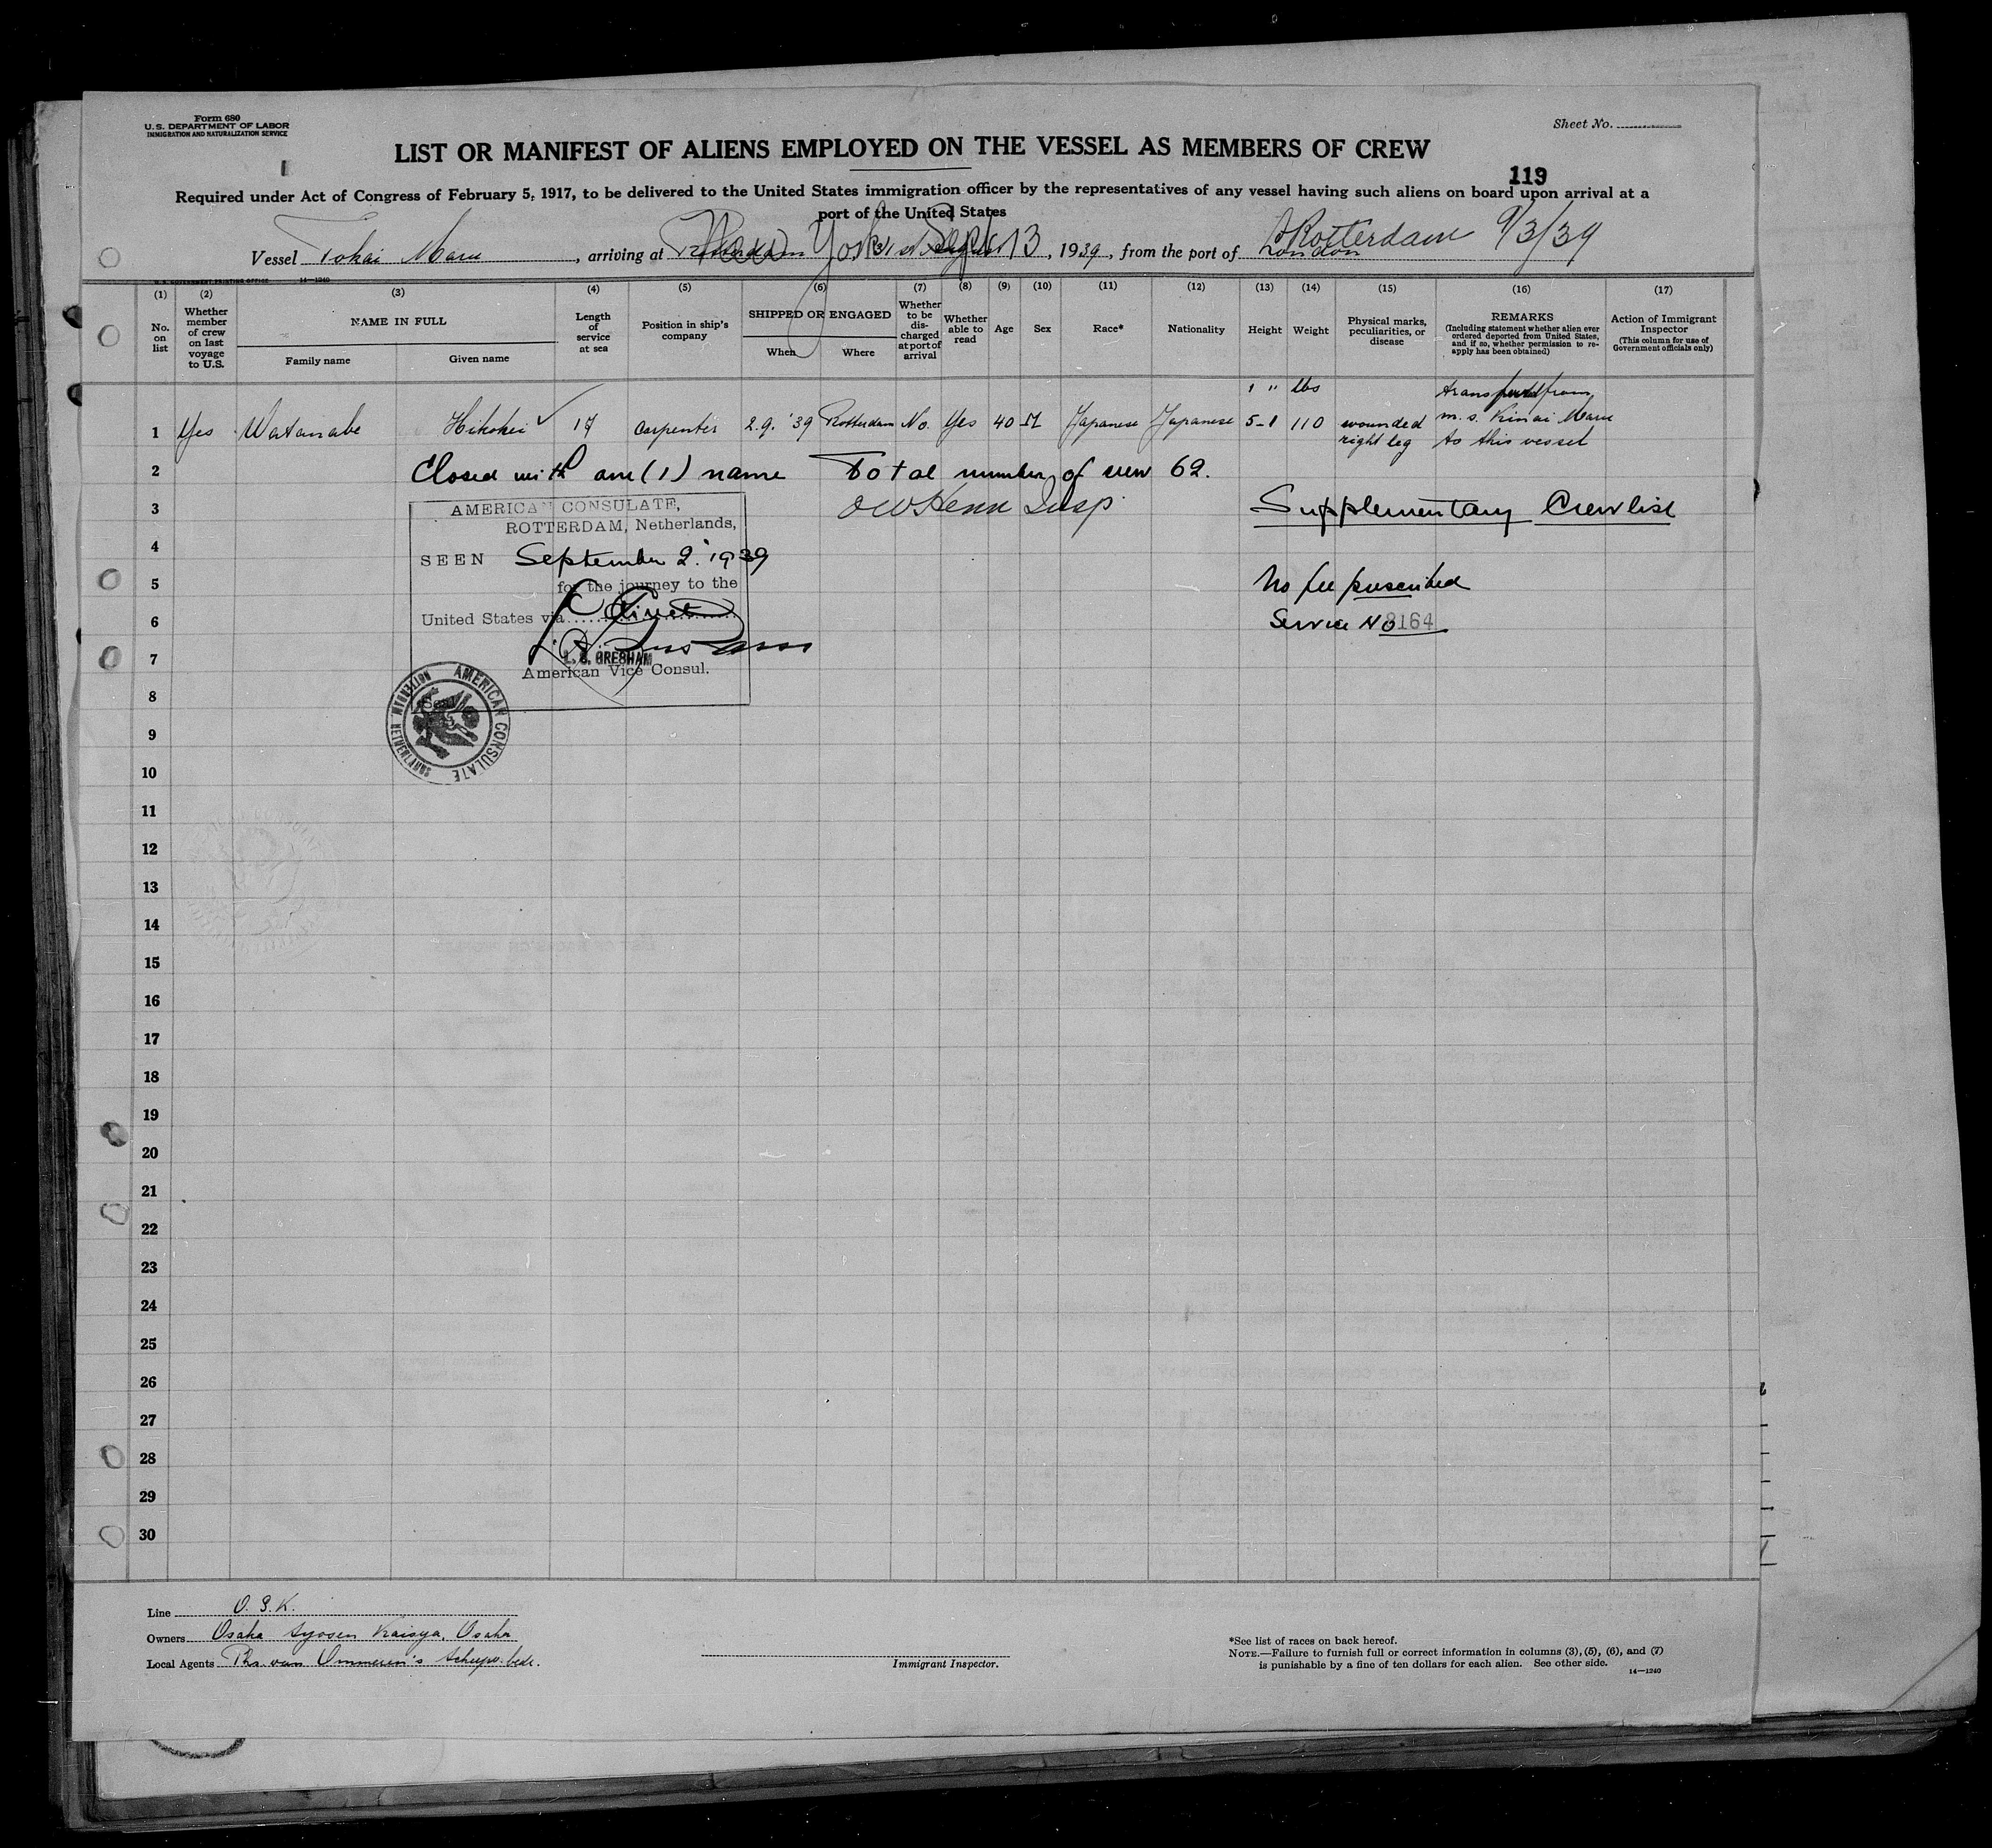 Form 680
U. S. DEPARTMENT OF LABOR
IMMIGRATION AND NATURALIZATION SERVICE
Sheet No.
LIST OR MANIFEST OF ALIENS EMPLOYED ON THE VESSEL AS MEMBERS OF CREW
119
Required under Act of Congress of February 5, 1917, to be delivered to the United States immigration officer by the representatives of any vessel having such aliens on board upon arrival at a
port of the United States
Vessel Tokai Maru, arriving at New York Sept 13, 1939, from the port of Rotterdam 9/3/39
London
U. S. GOVERNMENT PRINTING OFFICE 14—1240
(1) (2) (3) (4) (5) (6) (7) (8) (9) (10) (11) (12) (13) (14) (15) (16) (17)
No. on list
Whether member of crew on last voyage to U.S.
NAME IN FULL
Family name
Given name
Length of service at sea
Position in ship's company
SHIPPED OR ENGAGED
When
Where
Whether to be discharged at port of arrival
Whether able to read
Age
Sex
Race*
Nationality
Height
Weight
Physical marks, peculiarities, or disease
REMARKS
(Including statement whether alien ever ordered deported from United States, and if so, whether permission to re-apply has been obtained)
Action of Immigrant Inspector
(This column for use of Government officials only)
' " lbs
1 Yes Watanabe Hikohei 17 carpenter 2.9.'39 Rotterdam No. Yes 40 M Japanese Japanese 5-1 110 wounded right leg from m.s. Kinai Maru to this vessel
2 Closed with one (1) name Total number of crew 62.
3 Supplementary Crewlist
AMERICAN CONSULATE,
ROTTERDAM, Netherlands,
SEEN September 2. 1939
for the journey to the
United States via direct
L. S. GRESHAM
American Vice Consul.
(Seal)
AMERICAN CONSULATE
ROTTERDAM NETHERLANDS
No fee prescribed
Service No 8164
4
5
6
7
8
9
10
11
12
13
14
15
16
17
18
19
20
21
22
23
24
25
26
27
28
29
30
Line O. S. K.
Owners Osaka Syosen Kaisya, Osaka
Local Agents Phs. van Ommeren's Scheepv. bedr.
Immigrant Inspector.
*See list of races on back hereof.
NOTE.—Failure to furnish full or correct information in columns (3), (5), (6), and (7)
is punishable by a fine of ten dollars for each alien. See other side.
14—1240